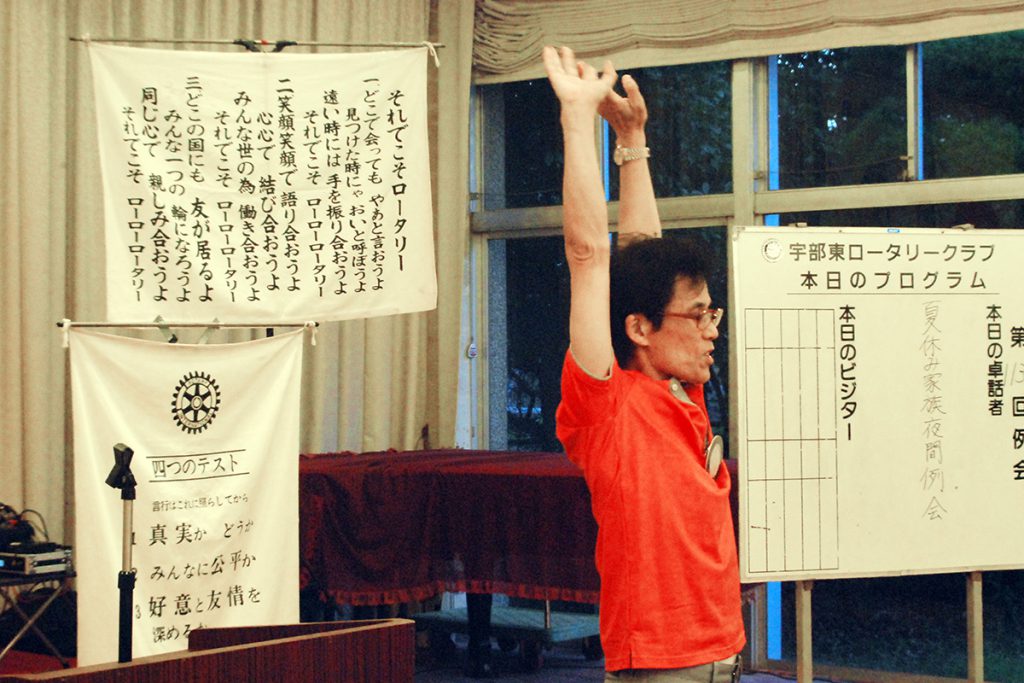 それでこそロータリー
一どこで会っても やあと言おうよ
見つけた時にゃ おいと呼ぼうよ
遠い時には 手を振り合おうよ
それでこそ ローローロータリー
二笑顔笑顔で 語り合おうよ
心心で 結び合おうよ
みんな世の為 働き合おうよ
それでこそ ローローロータリー
三どこの国にも 友が居るよ
みんな一つの 輪になろうよ
同じ心で 親しみ合おうよ
それでこそ ローローロータリー
四つのテスト
言行はこれに照らしてから
真実か どうか
みんなに公平か
3 好意と友情を
深めるか
宇部東ロータリークラブ
本日のプログラム
第 回例会
本日の卓話者
夏休み家族夜間例会.
本日のビジター